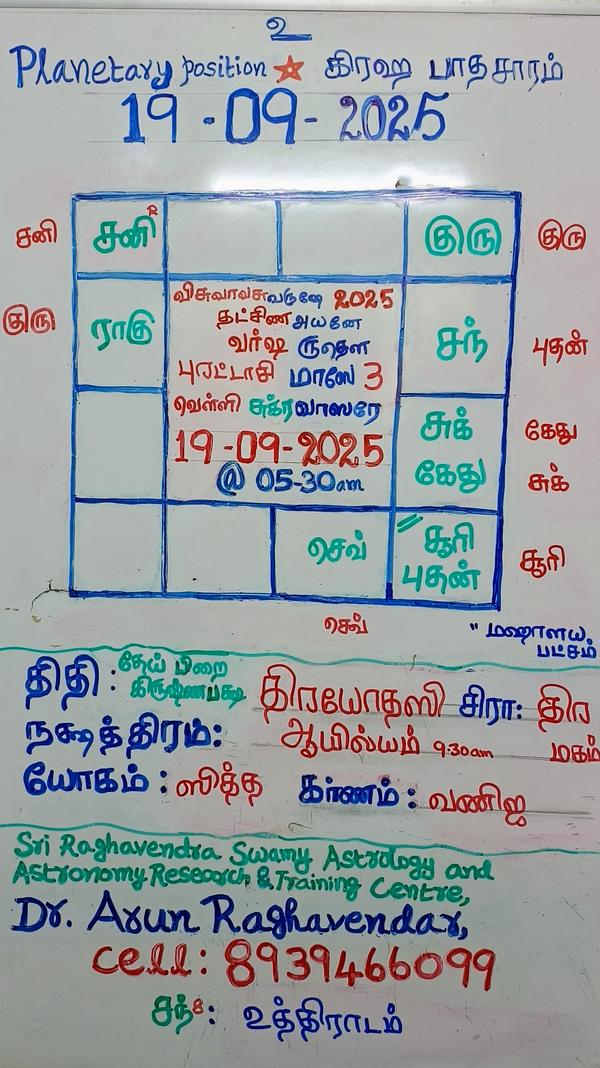 உ
Planetary position கிரஹ பாதசாரம்
19-09-2025
சனி சனி R குரு குரு
குரு ராகு சந் புதன்
விசுவாவசுவருஷே 2025
தட்சிண அயனே
வர்ஷ ருதௌ
புரட்டாசி மாஸே 3
வெள்ளி சுக்ரவாஸரே
19-09-2025
@ 05-30am
சுக் கேது
கேது சுக்
செவ் " சூரி சூரி
புதன்
செவ் " மஹாளய
பட்சம்
திதி : தேய் பிறை
கிருஷ்ணபக்ஷ திரயோதஸி சிரா: திர
நக்ஷத்திரம்: ஆயில்யம் 9:30am மகம்
யோகம் : ஸித்த கர்ணம் : வணிஜ
Sri Raghavendra Swamy Astrology and
Astronomy Research & Training Centre,
Dr. Arun Raghavendar,
Cell: 8939466099
சந் 8: உத்திராடம்